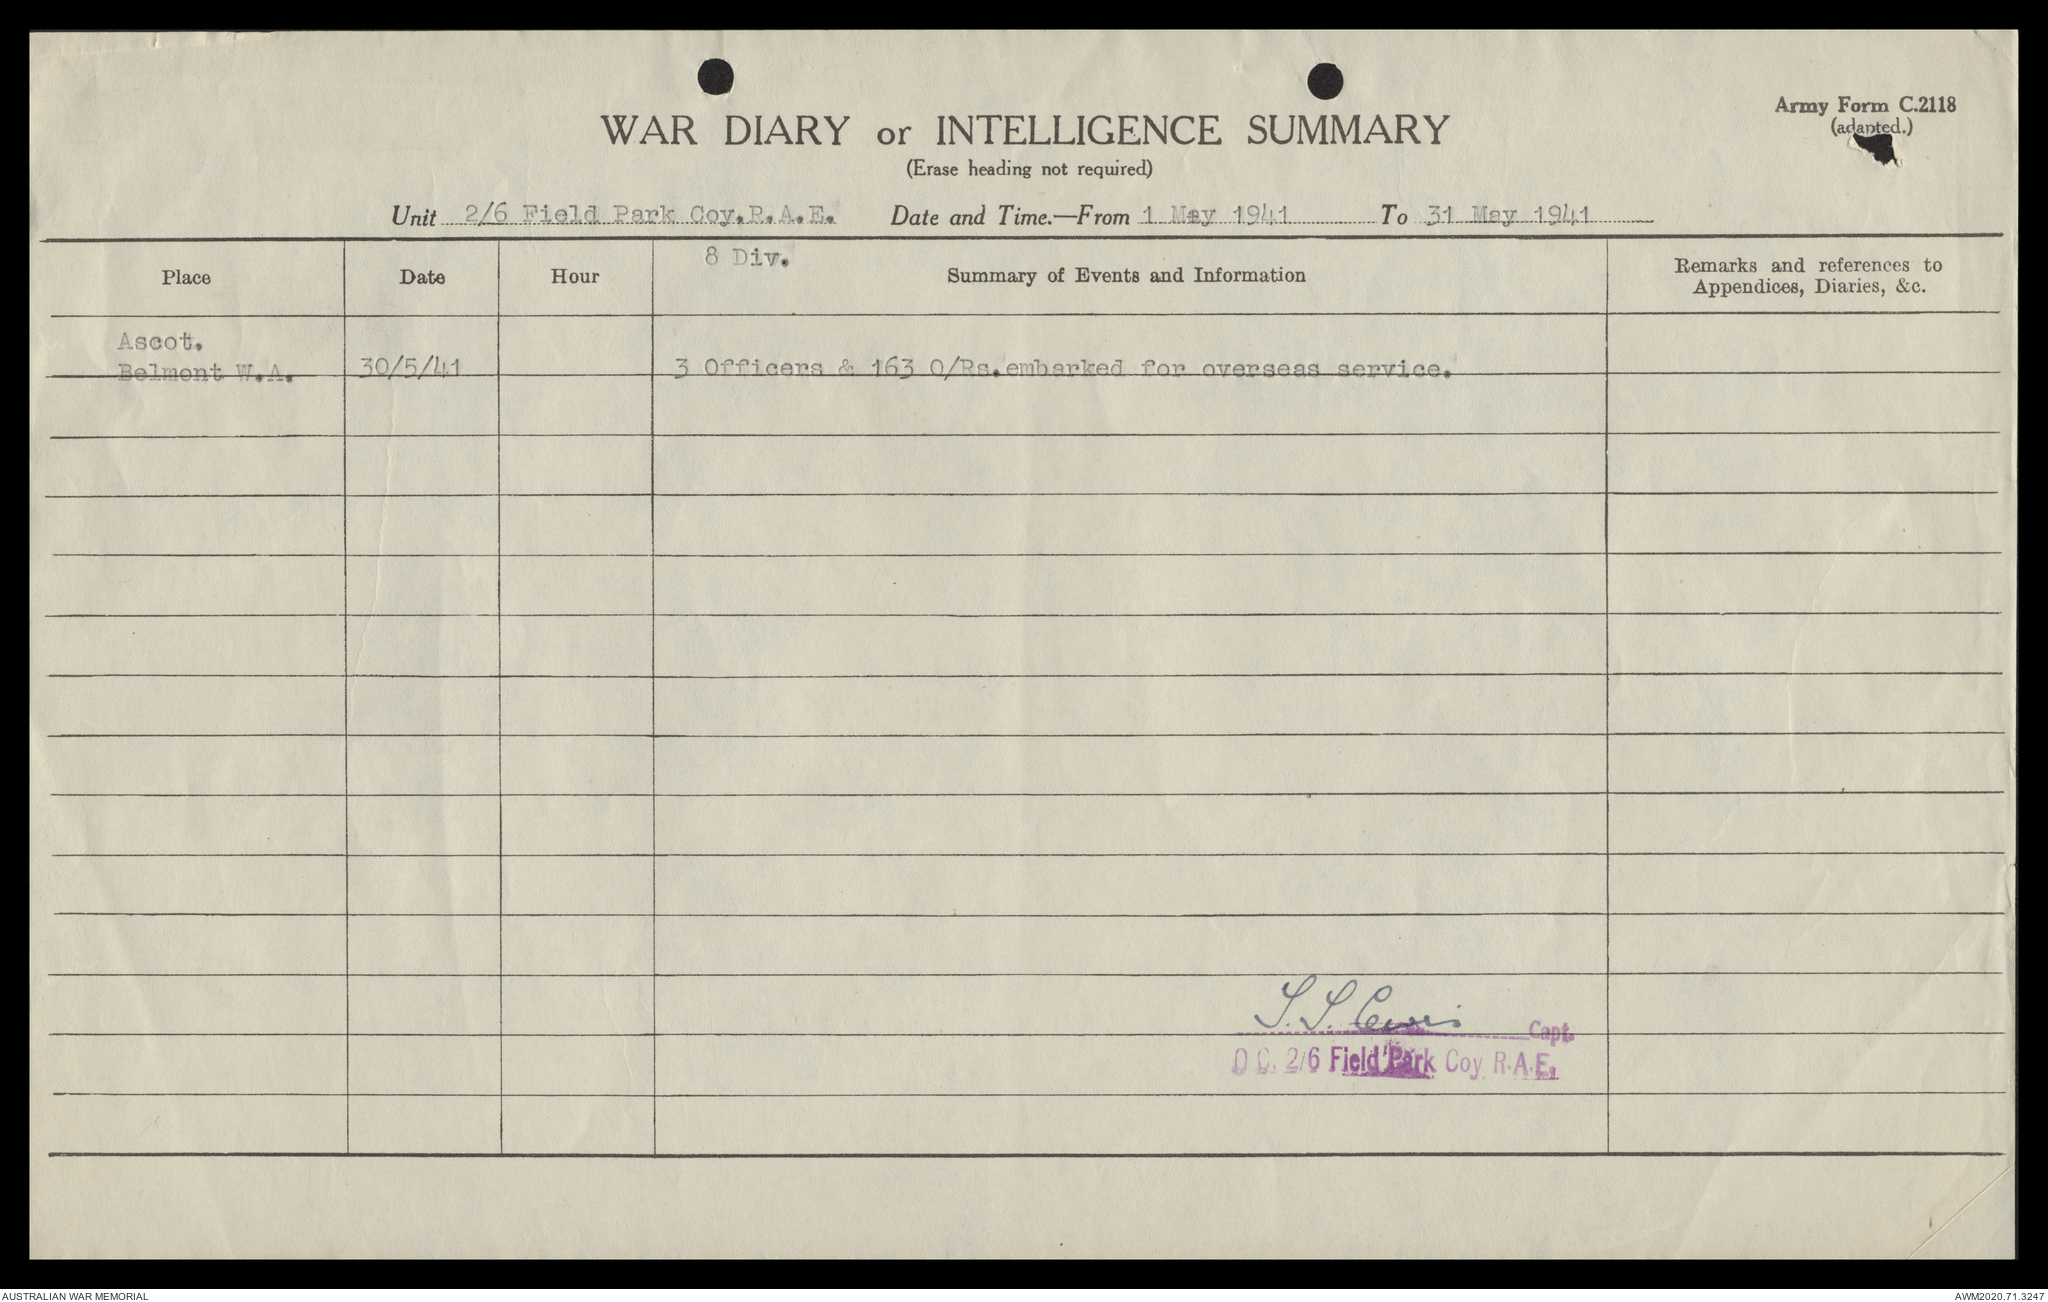 Army Form C.2118
(adapted.)
WAR DIARY or INTELLIGENCE SUMMARY
(Erase heading not required)
Unit 2/6 Field Park Coy.R.A.E. Date and Time.—From 1 May 1941 To 31 May 1941
8 Div.
Place Date Hour Summary of Events and Information Remarks and references to
Appendices, Diaries, &c.
Ascot.
Belmont W.A. 30/5/41 3 Officers & 163 O/Rs.embarked for overseas service.
Capt.
O C. 2/6 Field Park Coy R.A.E.
AUSTRALIAN WAR MEMORIAL
AWM2020.71.3247